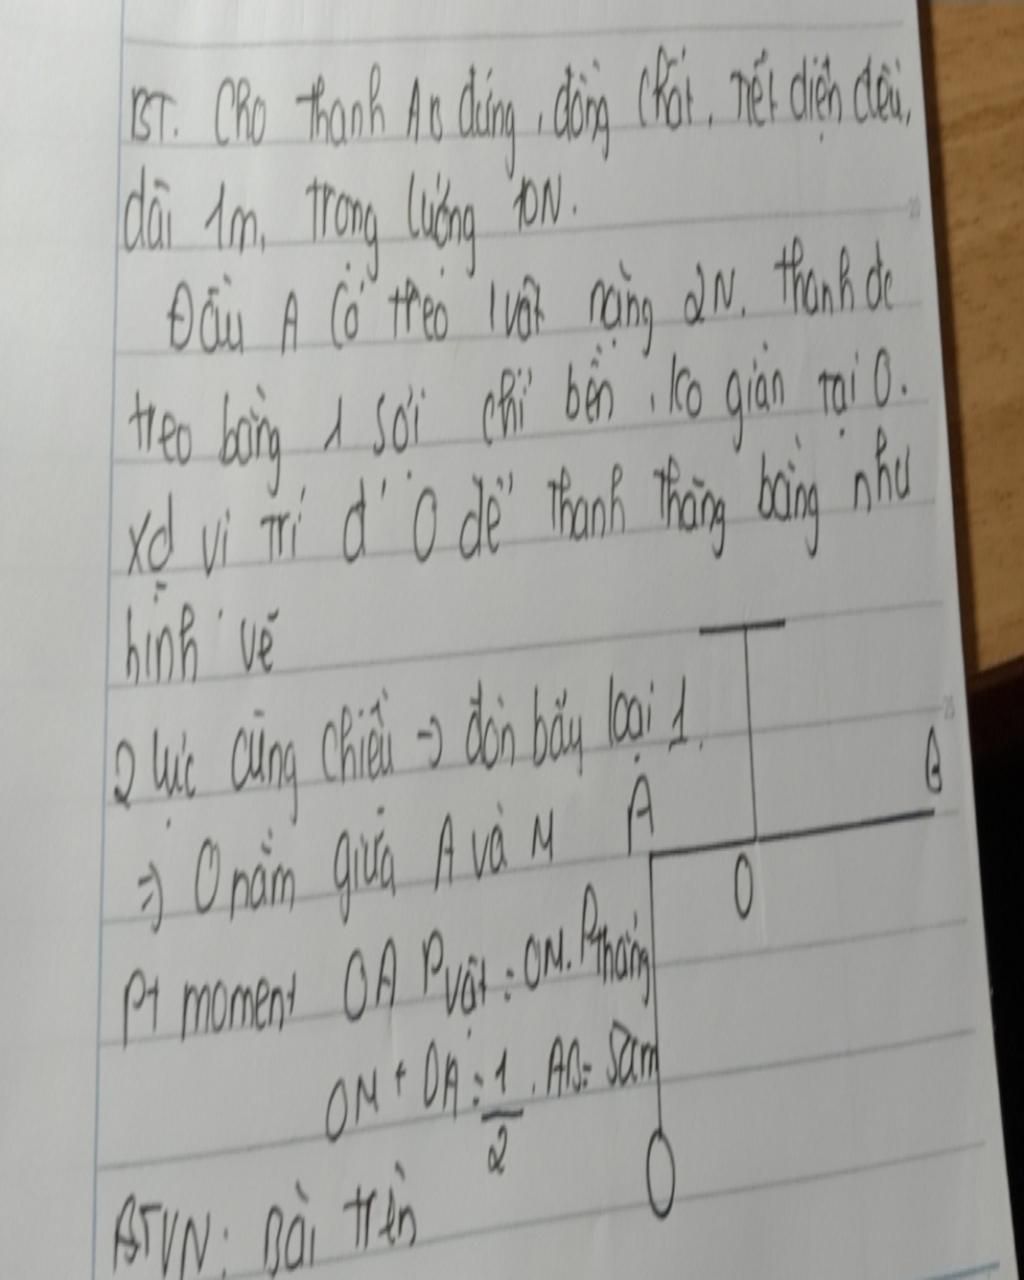 BT. Cho thanh AB đứng, đồng chất, tiết diện đều,
dài 1m, trọng lượng 10N.
Đầu A có treo 1 vật nặng 2N. thanh đc
treo bằng 1 sợi chỉ bền, ko giãn tại O.
xđ vị trí đ' O để thanh thăng bằng như
hình vẽ
2 lực cùng chiều → đòn bẩy loại 1.
⇒ O nằm giữa A và M
A
B
O
Pt moment OA Pvật = OM. Pthang
OM + OA = 1/2 . AB = 50cm
BTVN: Bài trên